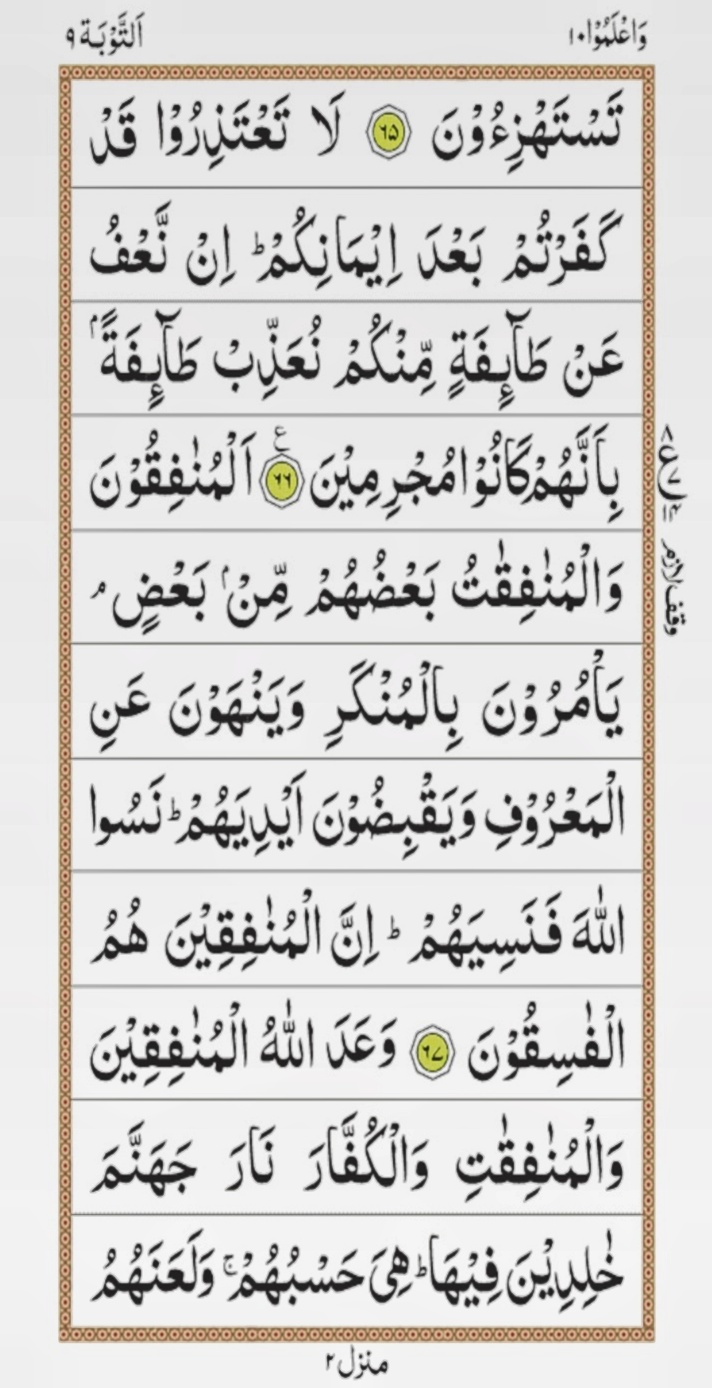 وَاعْلَمُوْا ١٠
اَلتَّوْبَة ٩
تَسْتَهْزِءُوْنَ ﴿٦٥﴾ لَا تَعْتَذِرُوْا قَدْ
كَفَرْتُمْ بَعْدَ اِيْمَانِكُمْ ؕ اِنْ نَّعْفُ
عَنْ طَآىِٕفَةٍ مِّنْكُمْ نُعَذِّبْ طَآىِٕفَةًۢ
بِاَنَّهُمْ كَانُوْا مُجْرِمِيْنَ ﴿٦٦﴾ ع اَلْمُنٰفِقُوْنَ
وَالْمُنٰفِقٰتُ بَعْضُهُمْ مِّنْۢ بَعْضٍ ۘ
يَاْمُرُوْنَ بِالْمُنْكَرِ وَيَنْهَوْنَ عَنِ
الْمَعْرُوْفِ وَيَقْبِضُوْنَ اَيْدِيَهُمْ ؕ نَسُوا
اللّٰهَ فَنَسِيَهُمْ ؕ اِنَّ الْمُنٰفِقِيْنَ هُمُ
الْفٰسِقُوْنَ ﴿٦٧﴾ وَعَدَ اللّٰهُ الْمُنٰفِقِيْنَ
وَالْمُنٰفِقٰتِ وَالْكُفَّارَ نَارَ جَهَنَّمَ
خٰلِدِيْنَ فِيْهَا ؕ هِيَ حَسْبُهُمْ ۚ وَلَعَنَهُمُ
وقف لازم
منزل ٢